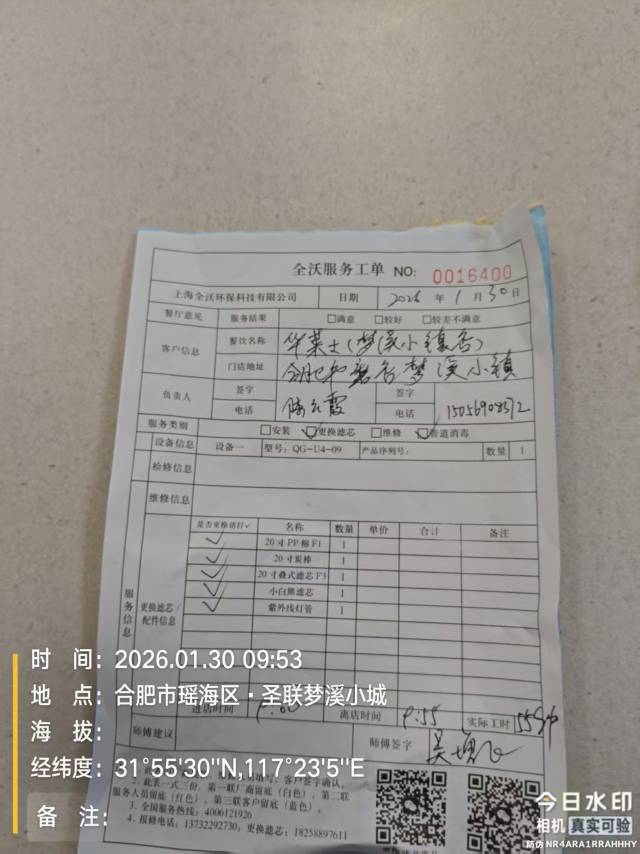 全沃服务工单 NO: 0016400
上海全沃环保科技有限公司 日期 2026 年 1 月 30 日
餐厅意见 服务结果 □满意 □较好 □较差不满意
客户信息 餐饮名称 华莱士(梦溪小镇店)
门店地址 合肥市 梦溪小镇
负责人 签字 签字
电话 电话
服务类别 □安装 ☑更换滤芯 □维修 ☑管道消毒
设备信息 设备一 型号: QG-U4-09 产品序列号: 数量 1
检修信息
维修信息
服务信息 更换滤芯/配件信息
是否更换请打✓ 名称 数量 单价 合计 备注
✓ 20寸PP棉F1 1
✓ 20寸炭棒 1
✓ 20寸叠式滤芯F3 1
✓ 小白熊滤芯 1
✓ 紫外线灯管 1
进店时间 离店时间 9:55 实际工时
师傅建议 师傅签字
客户签字确认。
2. 此表一式三份，第一联厂商留底（白色），第二联
服务人员留底（红色），第三联客户留底（蓝色）。
3. 全国服务热线: 4006121926
4. 报修电话: 13732292730; 更换滤芯: 18258897611
时 间: 2026.01.30 09:53
地 点: 合肥市瑶海区·圣联梦溪小城
海 拔:
经纬度: 31°55'30"N,117°23'5"E
备 注:
今日水印
相机 真实可验
防伪 NR4ARA1RRAHHHY